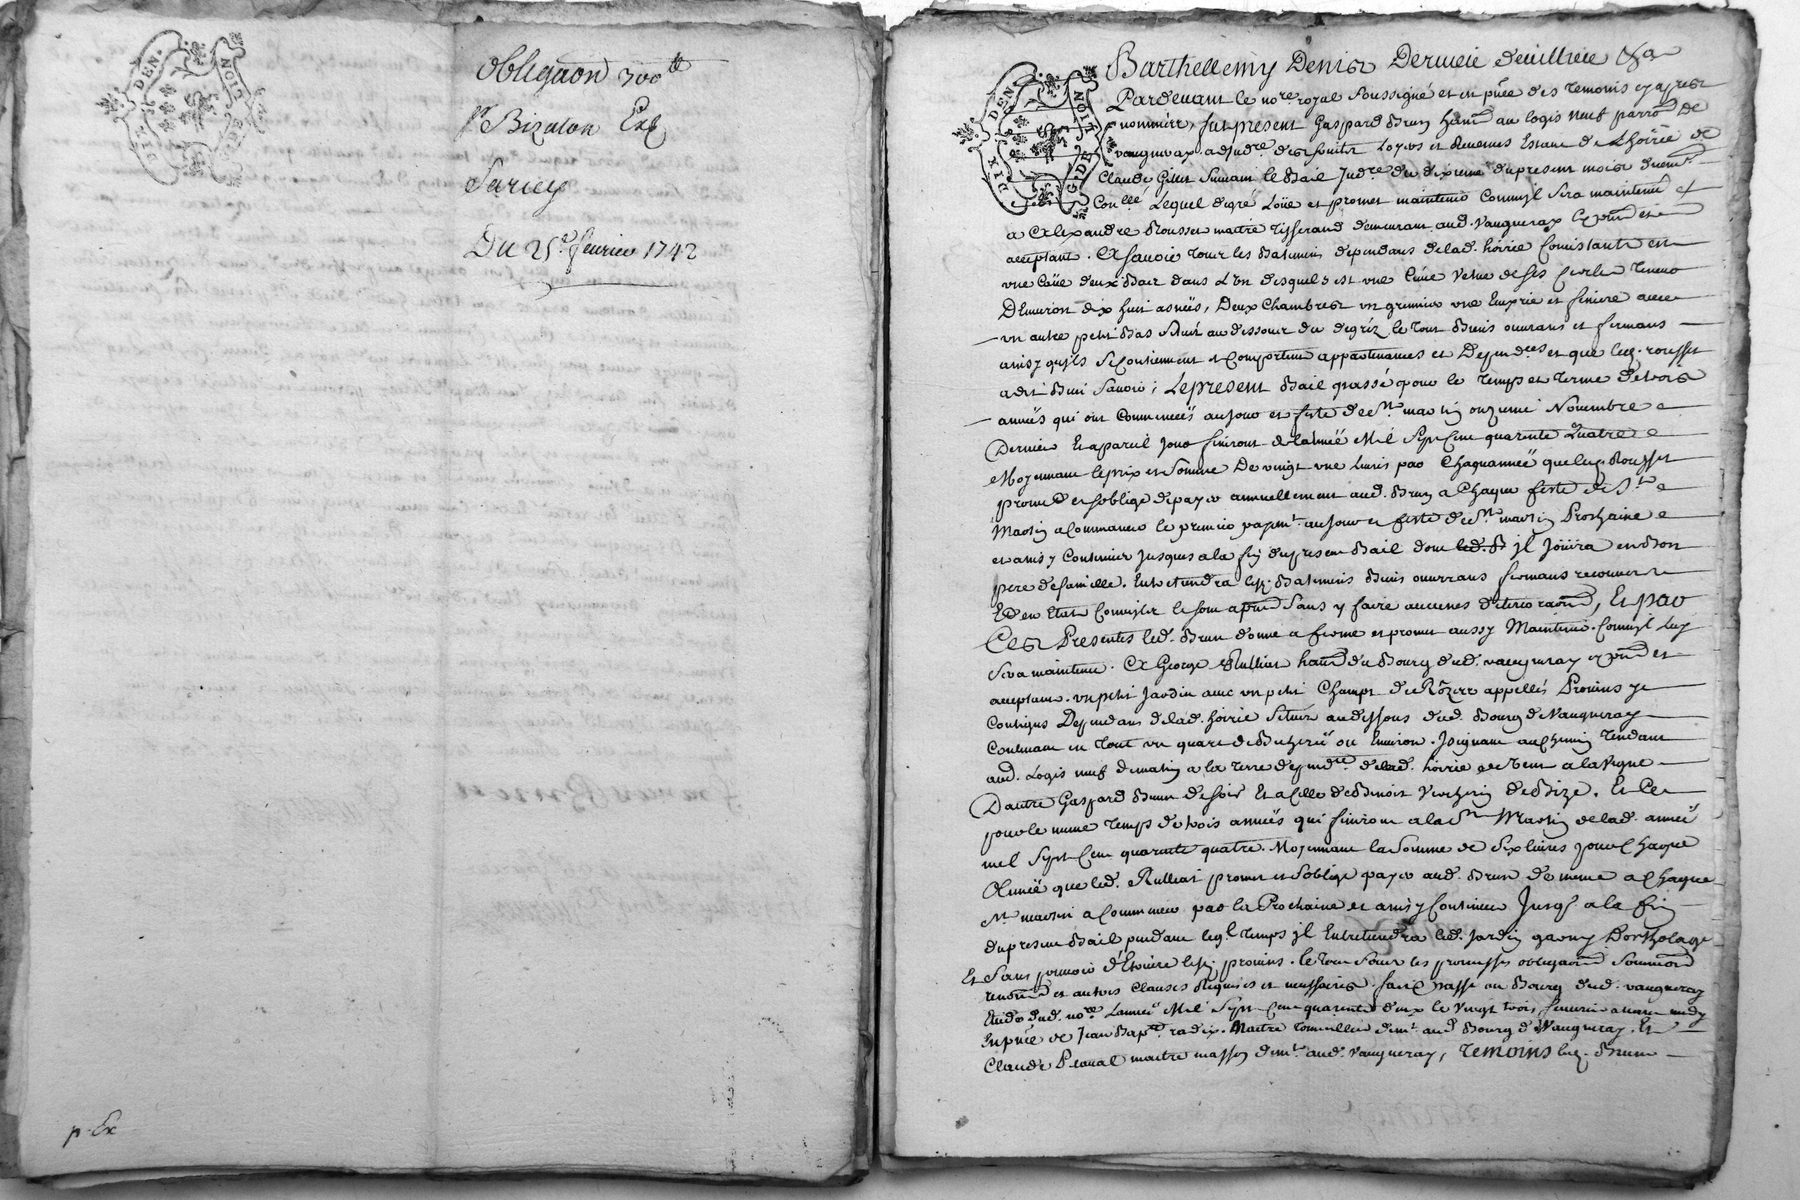 DIX DEN
G. DE LION
obligaõn 300 tt
Sr Bizalon Exp
Sarcey
Du 25e feuvrier 1742
p. Ex
DIX DEN
G. DE LION
Barthellemy Denis Dervieu
Pardevant le nore royal soussigné et en pñce des temoins cy apres
nommèes, fut present Gaspard Brun hant au logis neuf parroe De
vaugneray adjudre des fruits Loyers et Revenus Estant de Lhoirie de
Claude Gillet suivant le Bail Judre du dixieme du present mois
Lequel degré Loüe et promet maintenir Comm'jl sera maintenu
a Alexandre Rousset maitre Tisserand demeurant aud. Vaugneray
acceptant. A sçavoir tous les Batimens dependans delad. hoirie Consistants en
vne Cave deux Bas dans L'Un desquels est vne Cuve Vetue de ses Cercles Tenant
D'Environ dix huit asnées, Deux Chambres vn grenier vne Ecurie et feniere avec
vn autre petit Bas situé au dessous du degréz le tout Bienis ouvrans et fermans
ainsy qu'ils se Contiennent et Comportent appartenances et Dependces et que led. rousset
a dit Bien sçavoir; Le present Bail passé pour le Temps et Terme de trois
années qui ont Commencées au jour et feste de St martin onzieme Novembre
Dernier Et a pareil jour finiront de l'année Mil Sept Cent quarante Quatre
Moyennant le prix et Somme De vingt une Livres par Chaquannée que led. Rousset
promet et s'oblige de payer annuellement aud. Brun a Chaque feste de St
Martin a Commancer le premier payemt au jour et feste de St martin Prochaine
et ainsy Continuer Jusques a la fin du present Bail dont jl Joüira en Bon
pere de famille. Entretiendra les. Batimens Bienis ouvrans fermans recouverts
Et en Etat Comm'ils le sont a pnt sans y faire aucunes deterioraõns, Et par
Ces Presentes led. Brun donne a ferme et promet aussy Maintenir Comm'jl Luy
sera maintenu. A George Rulliat hant du Bourg dud. vaugneray cy pnt et
acceptant. vn petit Jardin avec vn petit Champt de appellés Provins
Contigus Dependans delad. hoirie Situés au dessous dud. Bourg de Vaugneray
Contenant en Tout vn quart de Bicherée ou Environ. Joignant au Chemin Tendant
aud. Logis neuf de matin a la Terre dependte delad. hoirie de vent a la Vigne
D'autre Gaspard Brun de soir Et a Celle de Benoit de Bize. Et Ce
pour le meme Temps de trois années qui finiront a la St Martin delad. année
mil Sept Cent quarante quatre. Moyennant la Somme de Six livres pour Chaque
Année que led. Rulliat promet et s'oblige payer aud. Brun de meme a Chaque
St martin a Commencer par la Prochaine et ainsy Continuer Jusq. a la fin
du present Bail pendant leql Temps jl Entretiendra led. Jardin garny D'orthologe
Et Sans pouvoir les. provins. le tout sous les promesses obligaõns
et autres Clauses Requises et necessaires. fait et passé au Bourg dud. vaugneray
Etude dud. nore L'année Mil Sept Cent quarante deux le Vingt trois feuvrier avant midy
En pñce de Jean Bapte radix. Maitre Tonnellier demt aud. Bourg de Vaugneray. Et
Claude maitre masson demt aud. Vaugneray, Temoins led. Brun